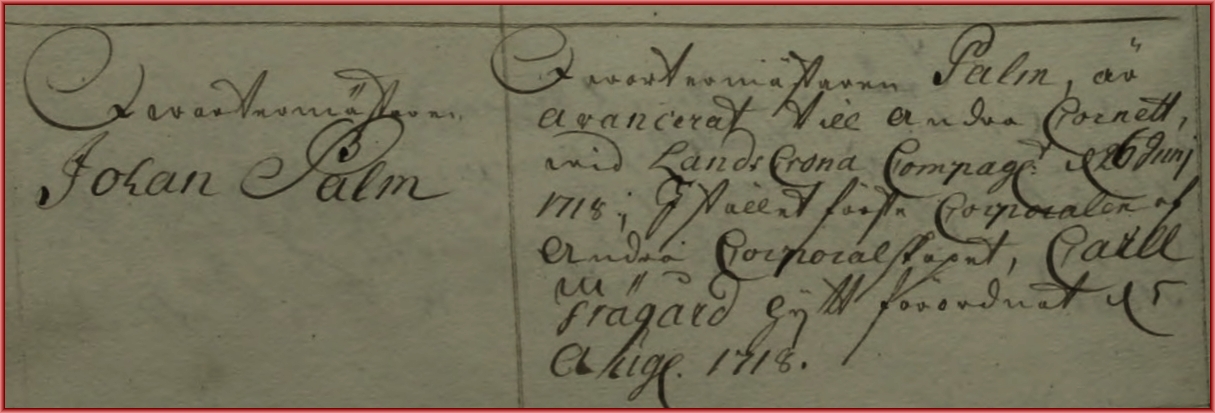 Qwartermästaren
Johan Palm
Qwartermästaren Palm, är
avancerat till andra Cornett,
wid LandsCrona Compag: d 26 Junj
1718; J stället förste Corporalen af
Andra Corporalskapet, Carll
förordnat d 5
Aug. 1718.